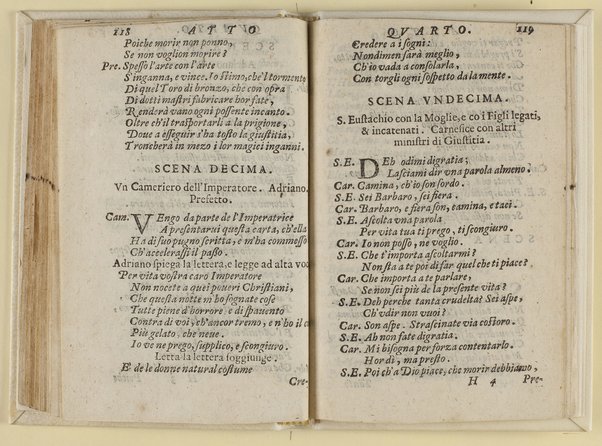 118 ATTO
Poiche morir non ponno,
Se non voglion morire?
Pre. Spesso l'arte con l'arte
S'inganna, e vince. Io stimo, che'l tormento
Di quel Toro di bronzo, che con opra
Di dotti mastri fabricare hor fate,
Renderà vano ogni possente incanto.
Oltre ch'il trasportarli a la prigione,
Doue a esseguir s'ha tosto la giustitia,
Troncherà in mezo i lor magici inganni.
SCENA DECIMA.
Vn Cameriero dell'Imperatore. Adriano.
Prefetto.
Cam. VEngo da parte de l'Imperatrice
A presentarui questa carta, ch'ella
Ha di suo pugno scritta, e m'ha commesso
Ch'accelerassi il passo.
Adriano spiega la lettera, e legge ad alta voc
Per vita vostra caro Imperatore
Non nocete a quei poueri Christiani,
Che questa notte m'hò sognate cose
Tutte piene d'horrore, e di spauento
Contra di voi, ch'ancor tremo, e n'ho il co
Più gelato, che neue.
Io ve ne prego, supplico, e scongiuro.
Letta la lettera soggiunge.
E' de le donne natural costume
Cre-
QVARTO. 119
Credere a i sogni:
Nondimen sarà meglio,
Ch'io vada a consolarla,
Con torgli ogni sospetto da la mente.
SCENA VNDECIMA.
S. Eustachio con la Moglie, e co i Figli legati,
& incatenati. Carnefice con altri
ministri di Giustitia.
S.E. DEh odimi di gratia;
Lasciami dir vna parola almeno.
Car. Camina, ch'io son sordo.
S.E. Sei Barbaro, sei fiera.
Car. Barbaro, e fiera son, camina, e taci.
S.E. Ascolta vna parola
Per vita tua ti prego, ti scongiuro.
Car. Io non posso, ne voglio.
S.E. Che t'importa ascoltarmi?
Non sta a te poi di far quel che ti piace?
Car. Che importa a te parlare,
Se non sei più de la presente vita?
S.E. Deh perche tanta crudeltà? Sei aspe,
Ch'vdir non vuoi?
Car. Son aspe. Strascinate via costoro.
S.E. Ah non fate di gratia.
Car. Mi bisogna per forza contentarlo.
Hor di, ma presto.
S.E. Poi ch'a Dio piace, che morir debbiamo,
H 4 Pre-